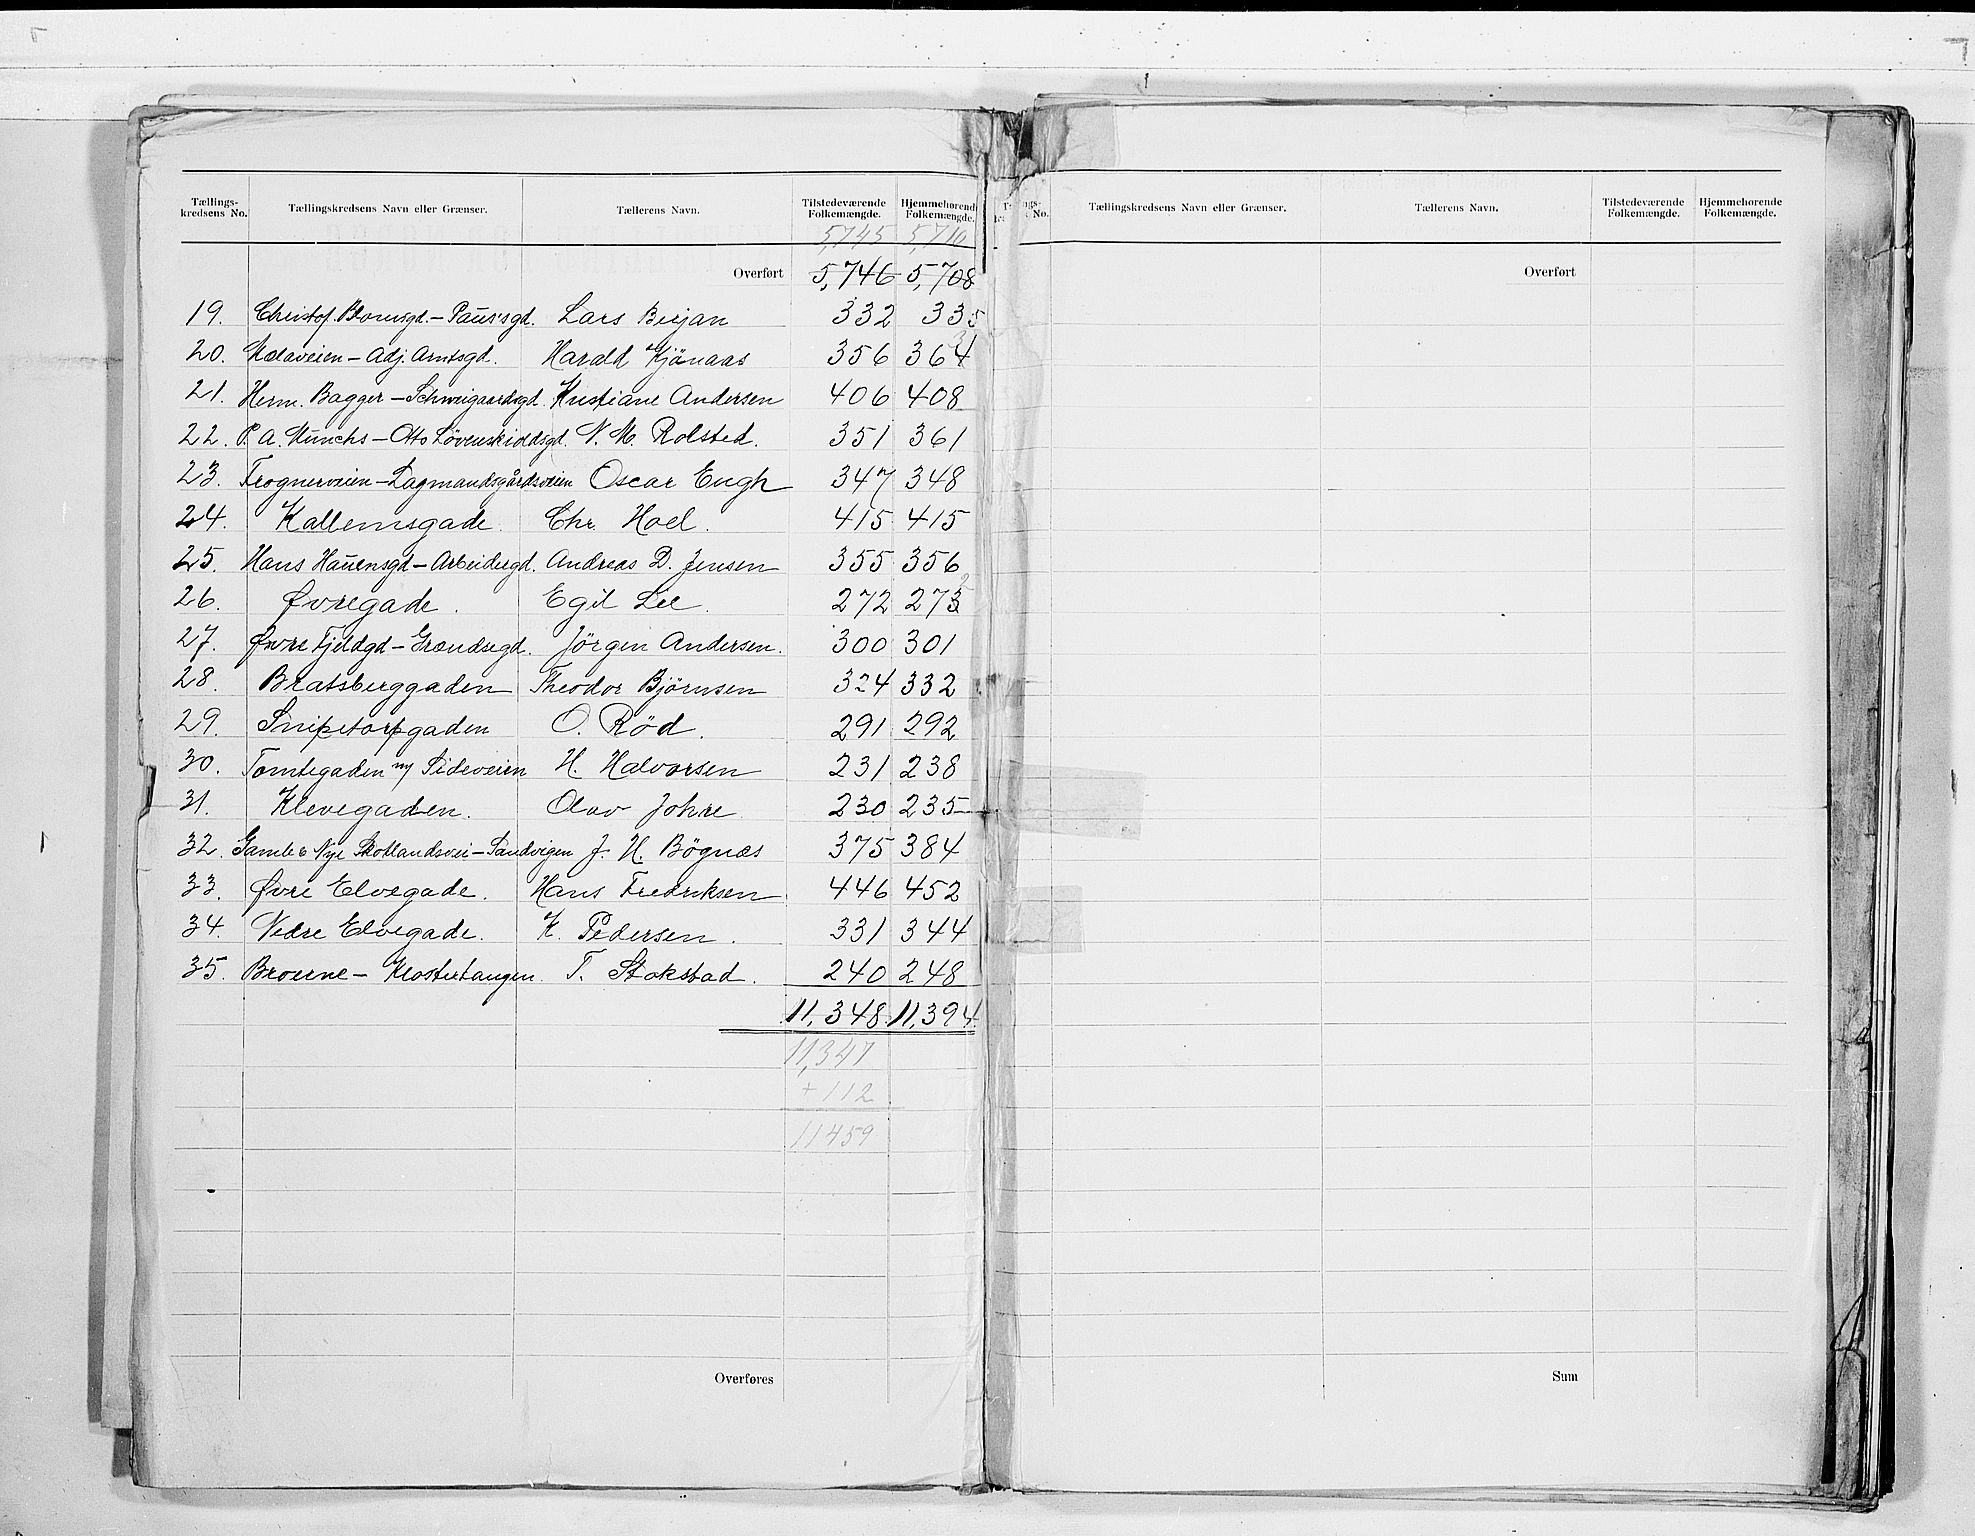 Tællings-kredsens No. Tællingskredsens Navn eller Grænser. Tællerens Navn. Tilstedeværende Folkemængde. Hjemmehørende Folkemængde.
5,745 5,710
Overført 5,746 5,708
19. Christof. Blomsgd. – Paus'sgd. Lars Berjan 332 335
20. Mælaveien – Adj. Amtsgd. Harald Kjönaas 356 364
21. Herm. Bagger – Schweigaardsgd. Kristiane Andersen 406 408
22. P. A. Munchs – Otto Lövenskioldsgd. N. M. Rolsted. 351 361
23. Frognerveien – Dagmandsgårdsveien Oscar Engh 347 348
24. Kallemsgade Chr. Hoel. 415 415
25. Hans Hauensgd – Arbeidergd. Andreas D. Jensen 355 356
26. Øvregade. Egil Lie. 272 273
27. Øvre Fjeldgd – Grændsegd. Jörgen Andersen. 300 301
28. Bratsberggaden Theodor Björnsen 324 332
29. Snipetorpgaden O. Röd. 291 292
30. Tomtegaden m/ Sideveien H. Halvorsen 231 238
31. Klevegaden. Olav Johre 230 235
32. Gamle & Nye Skotlandsvei – Sandvigen J. H. Bögnæs 375 384
33. Øvre Elvegade. Hans Fredriksen 446 452
34. Nedre Elvegade. K. Pedersen. 331 344
35. Broerne – Klostertangen. T. Stokstad. 240 248
11,348 11,394
11,347
+ 112
11459
Overføres
Tællingskredsens Navn eller Grænser. Tællerens Navn. Tilstedeværende Folkemængde. Hjemmehørende Folkemængde.
Overført
Sum